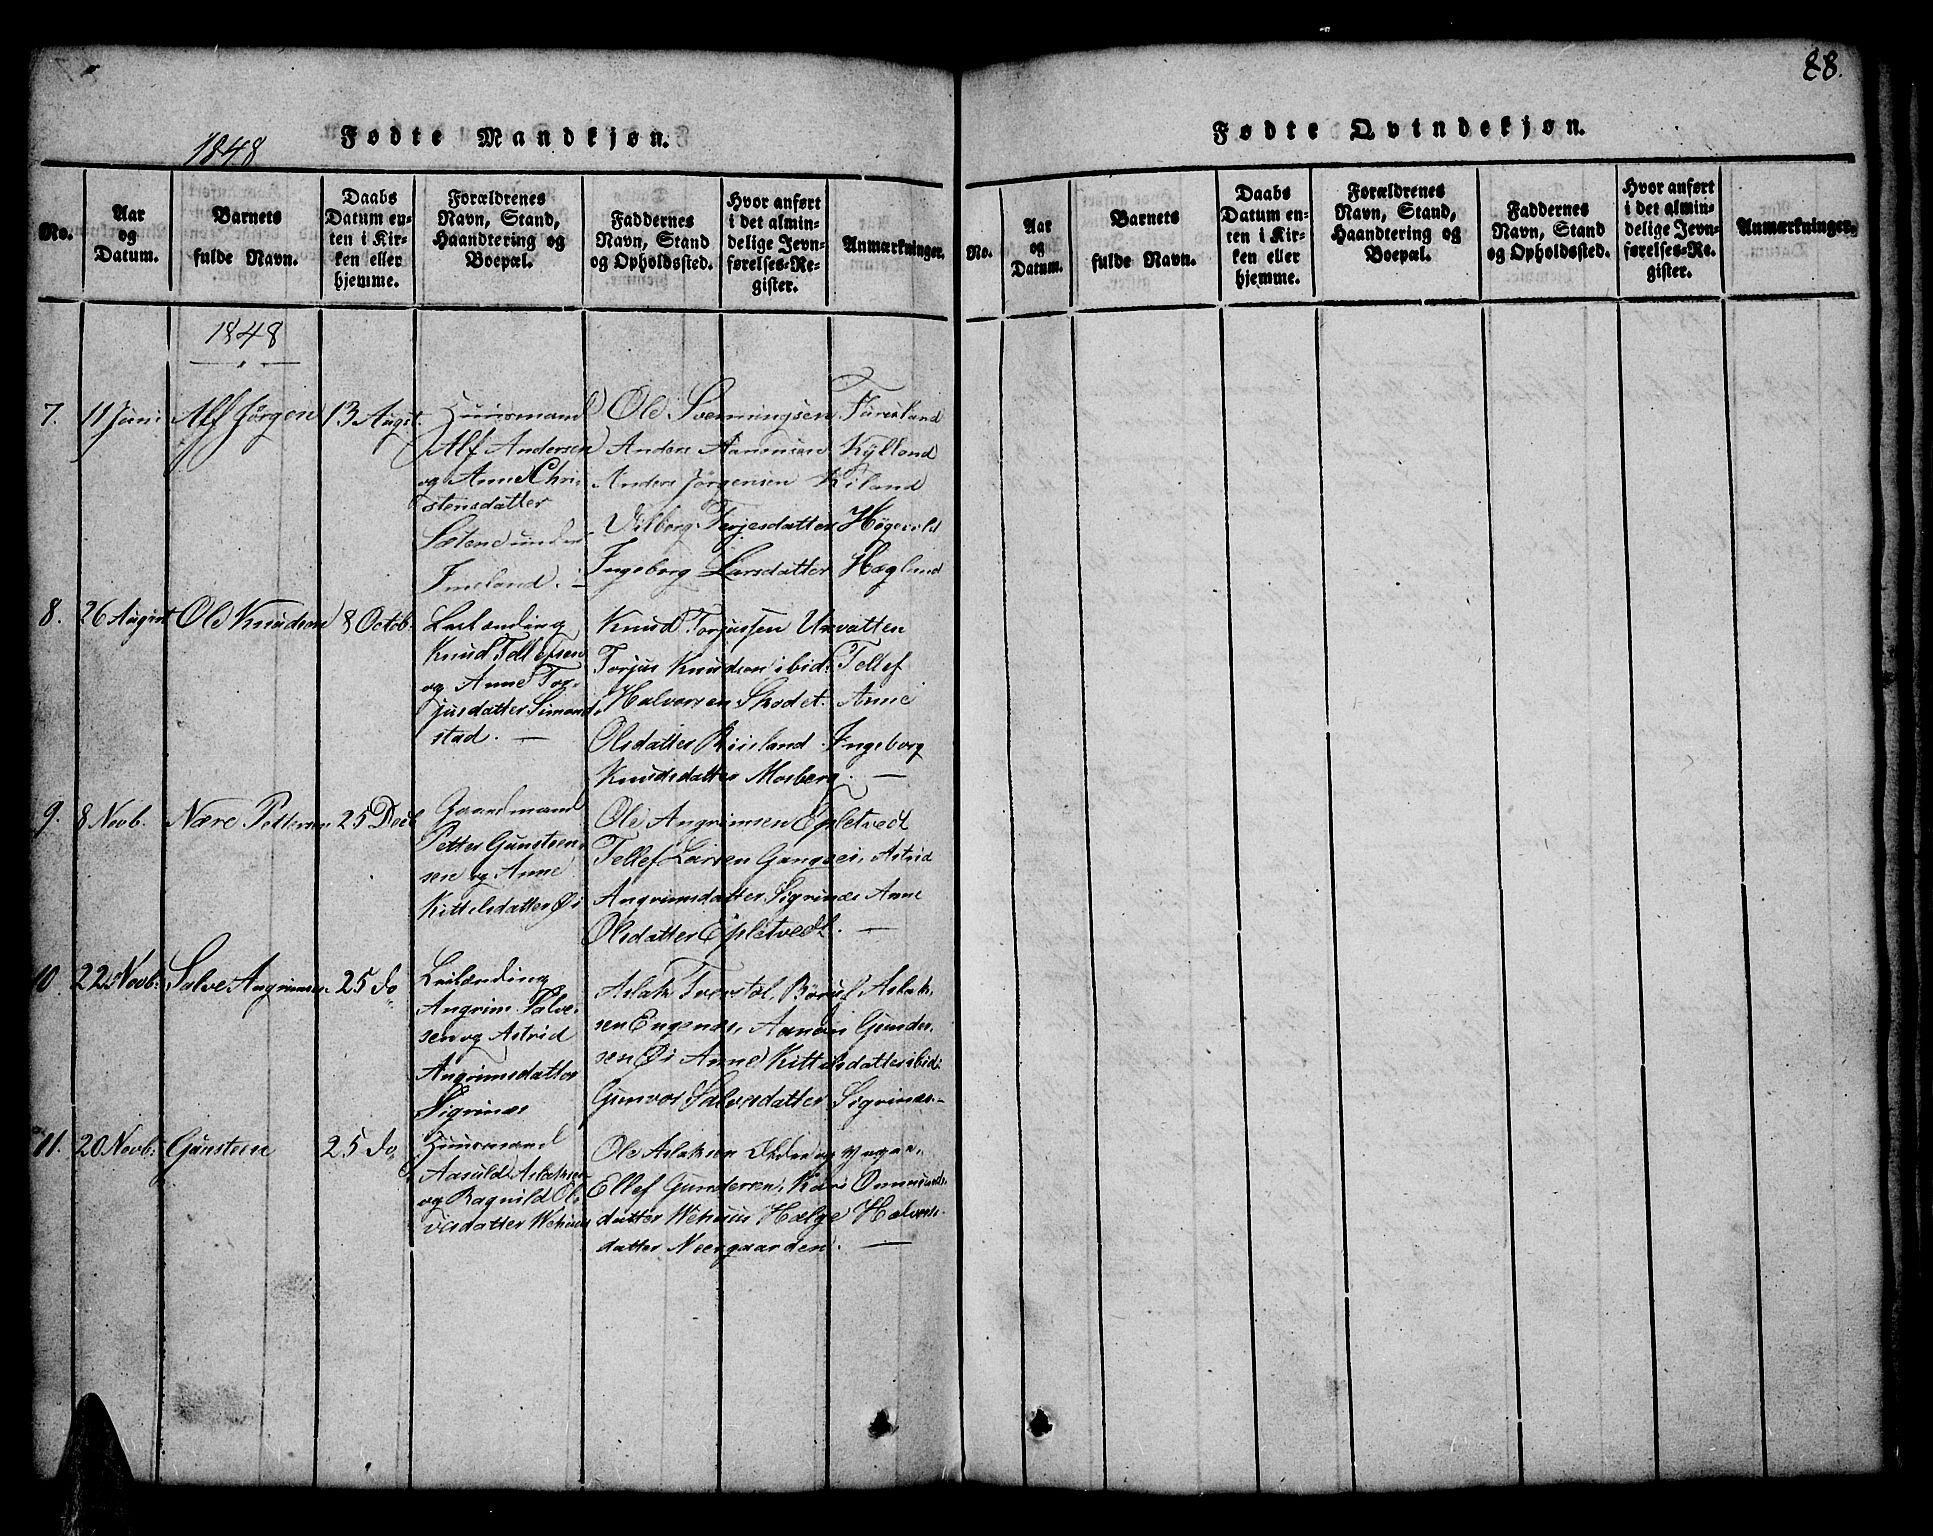 88.
1848
Fødte Mandkjøn.
No.
Aar og Datum.
Barnets fulde Navn.
Daabs Datum enten i Kirken eller hjemme.
Forældrenes Navn, Stand, Haandtering og Boepæl.
Faddernes Navn, Stand og Opholdssted.
Hvor anført i det almindelige Jevnførelses-Register.
Anmærkninger.
1848
7. 11 Juni Alf Jørgen 13 Augst.
Huusmand
Alf Andersen
og Anne Chri
stensdatter
under
Imeland.
Ole Svenningsen
Anders Aanonsen Kylland
Anders Jørgensen Kiland
Vilborg Terjesdatter
Ingeborg Larsdatter Hægland
8. 26 August Ole Knudsen 8 Octob.
Leilending
Knud Tellefsen
og Anne Tor-
jusdatter Simon
stad. —
Knud Torjussen Uxvatten
Torjus Knudsen ibid: Tellef
Halvorsen Skodet. Anne
Olsdatter Riisland Ingeborg
Knudsdatter Mosberg. —
9. 8 Novb. Nære Pettersen 25 Decb
Gaardmand
Petter Gunsteen-
sen og Anne
Kittelsdatter Øi
Ole Angrimsen Epletvedt
Tellef Larsen Gangsei, Astrid
Angrimsdatter Sigrinæs Anne
Olsdatter Epletvedt. —
10 22 Novb: Salve Angrimsen 25 do
Leilending
Angrim Salve-
sen og Astrid
Angrimsdatter
Sigrinæs
Aslak Tverstøl, Børuf Aslak-
sen Engenæs, Aanon Gunder-
sen Øi Anne Kittelsdatter ibid:
Gunvor Salvesdatter Sigrinæs.—
11. 20 Novb: Gunsteen 25 do
Huusmand
Aasuld Aslaksen
og Ragnild Ol-
vesdatter Wehuus
Ole Aslaksen
Ellef Gundersen, Kari Ommunds-
datter Wehuus Hælge Halvors-
datter Neergaarden. —
Fødte Qvindekjøn.
No.
Aar og Datum.
Barnets fulde Navn.
Daabs Datum enten i Kirken eller hjemme.
Forældrenes Navn, Stand, Haandtering og Boepæl.
Faddernes Navn, Stand og Opholdssted.
Hvor anført i det almindelige Jevnførelses-Register.
Anmærkninger.